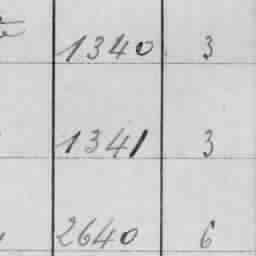 1340 3
1341 3
2640 6